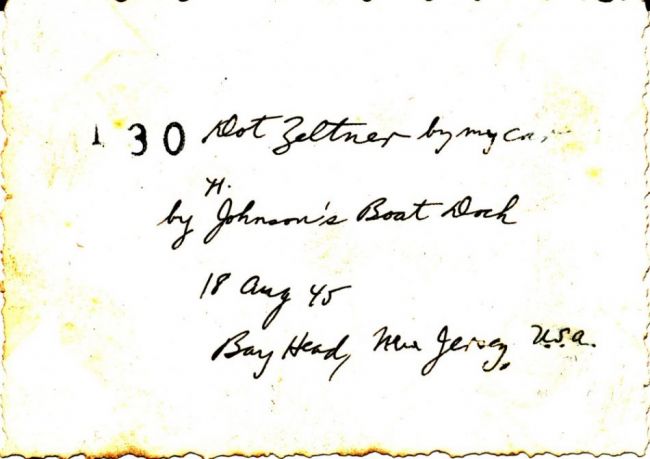 1 30 Dot Zeltner by my
H.
by Johnson's Boat Dock
18 Aug 45
Bay Head, New Jersey, U.S.A.